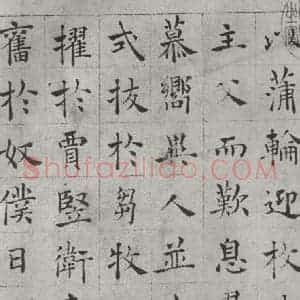 以蒲輪迎枚
主父而歎息
慕嚮異人並
式拔於芻牧
擢於賈豎衛
舊於奴僕日
Shufaziliao.COM